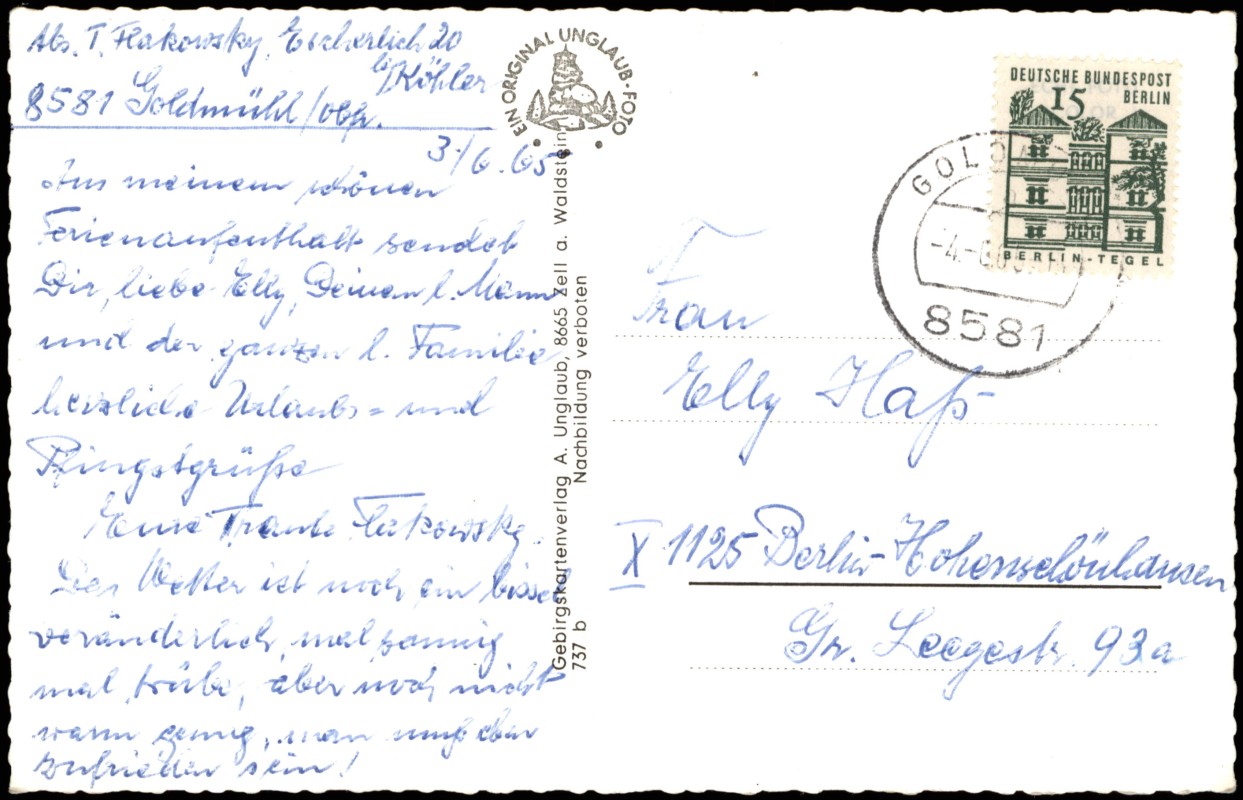 Abs. T. Flakowsky, Escherlich 20
b/Köhler
8581 Goldmühl/
3/6.65
Aus meinem schönen
Ferienaufenthalt sendet
Dir, liebe Elly, Deinen l. Mann
und der ganzen l. Familie
herzliche Urlaubs= und
Pfingstgrüße
Eure Traute Flakowsky.
Das Wetter ist noch ein bissel
veränderlich, mal sonnig
mal trübe, aber noch nicht
warm genug, man muß eben
zufrieden sein!
EIN ORIGINAL UNGLAUB-FOTO
Gebirgskartenverlag A. Unglaub, 8665 Zell a. Waldstein
Nachbildung verboten
737 b
DEUTSCHE BUNDESPOST
BERLIN
15
BERLIN-TEGEL
8581
Frau
Elly Haß
X 1125 Berlin-Hohenschönhausen
Gr. Leegestr. 93a